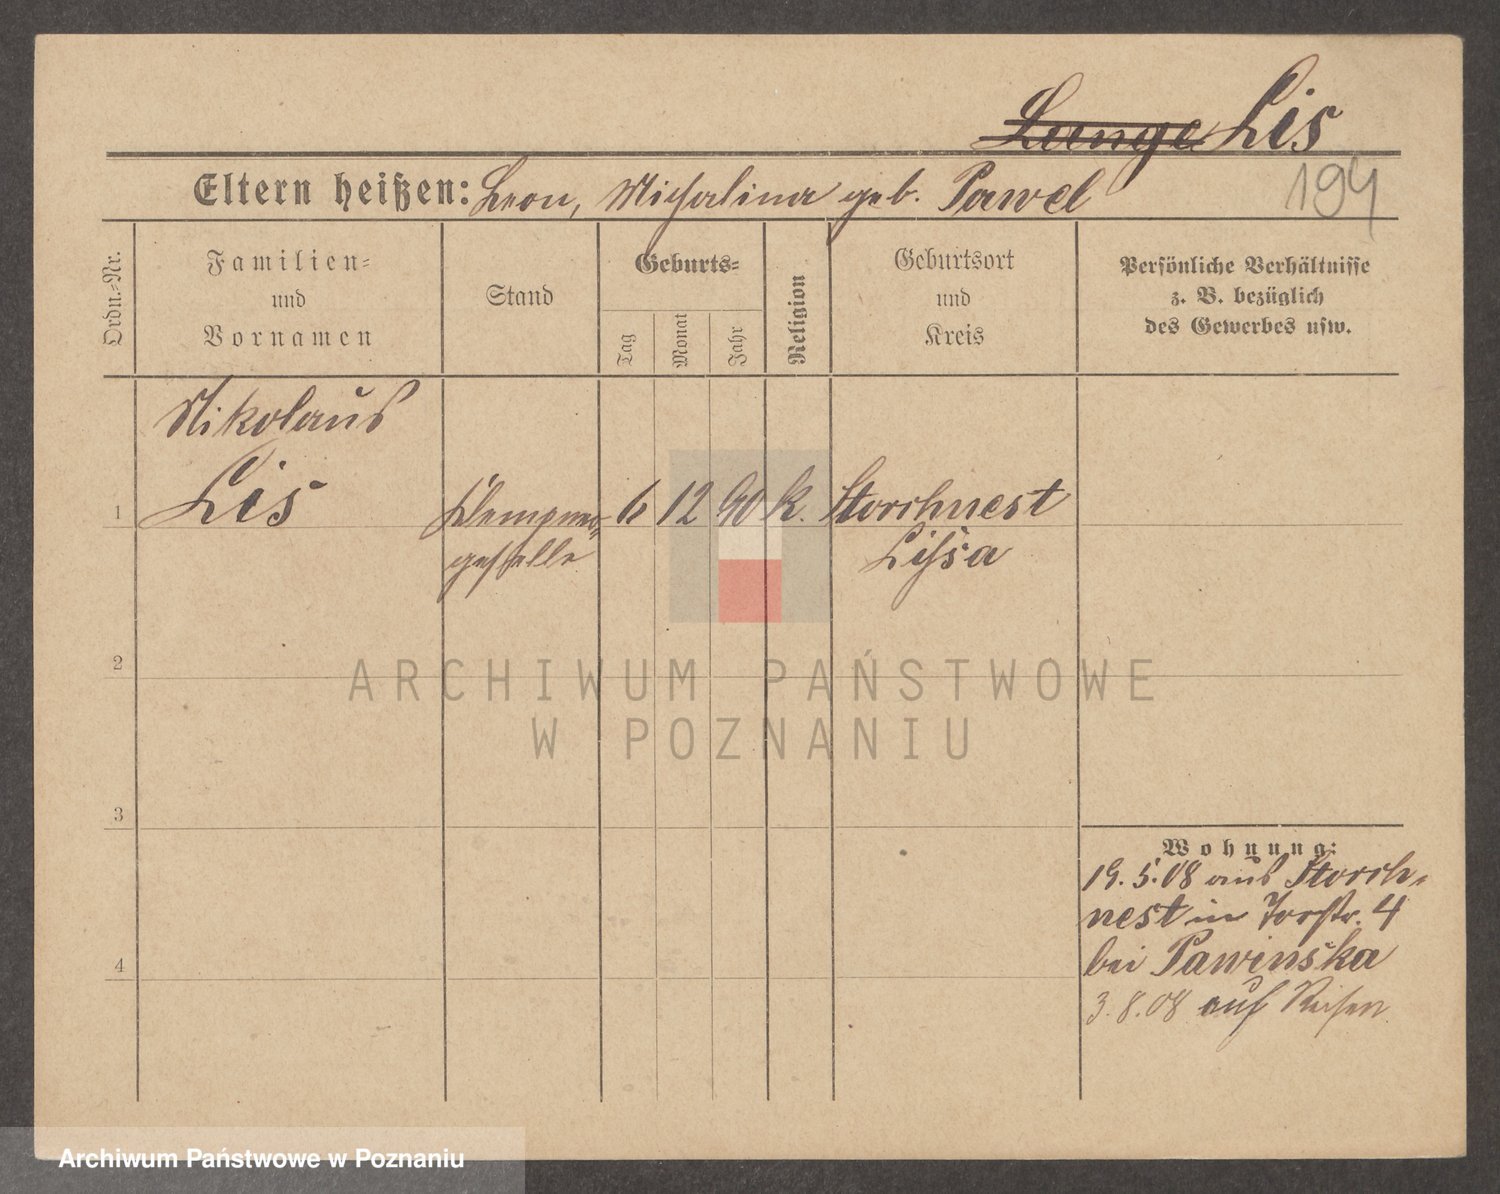 Lange Lis
Eltern heißen: Leon, Michalina geb. Pawel
194
Ordn.-Nr.
Familien-
und
Vornamen
Stand
Geburts-
Tag
Monat
Jahr
Religion
Geburtsort
und
Kreis
Persönliche Verhältnisse
z. B. bezüglich
des Gewerbes usw.
Nikolaus
1 Lis Klempner- 6 12 90 k. Storchnest
geselle Lissa
2
ARCHIWUM PAŃSTWOWE
W POZNANIU
3
Wohnung:
19. 5. 08 aus Storch-
nest in Torstr. 4
bei Pawinska
4
3. 8. 08 auf Reisen
Archiwum Państwowe w Poznaniu